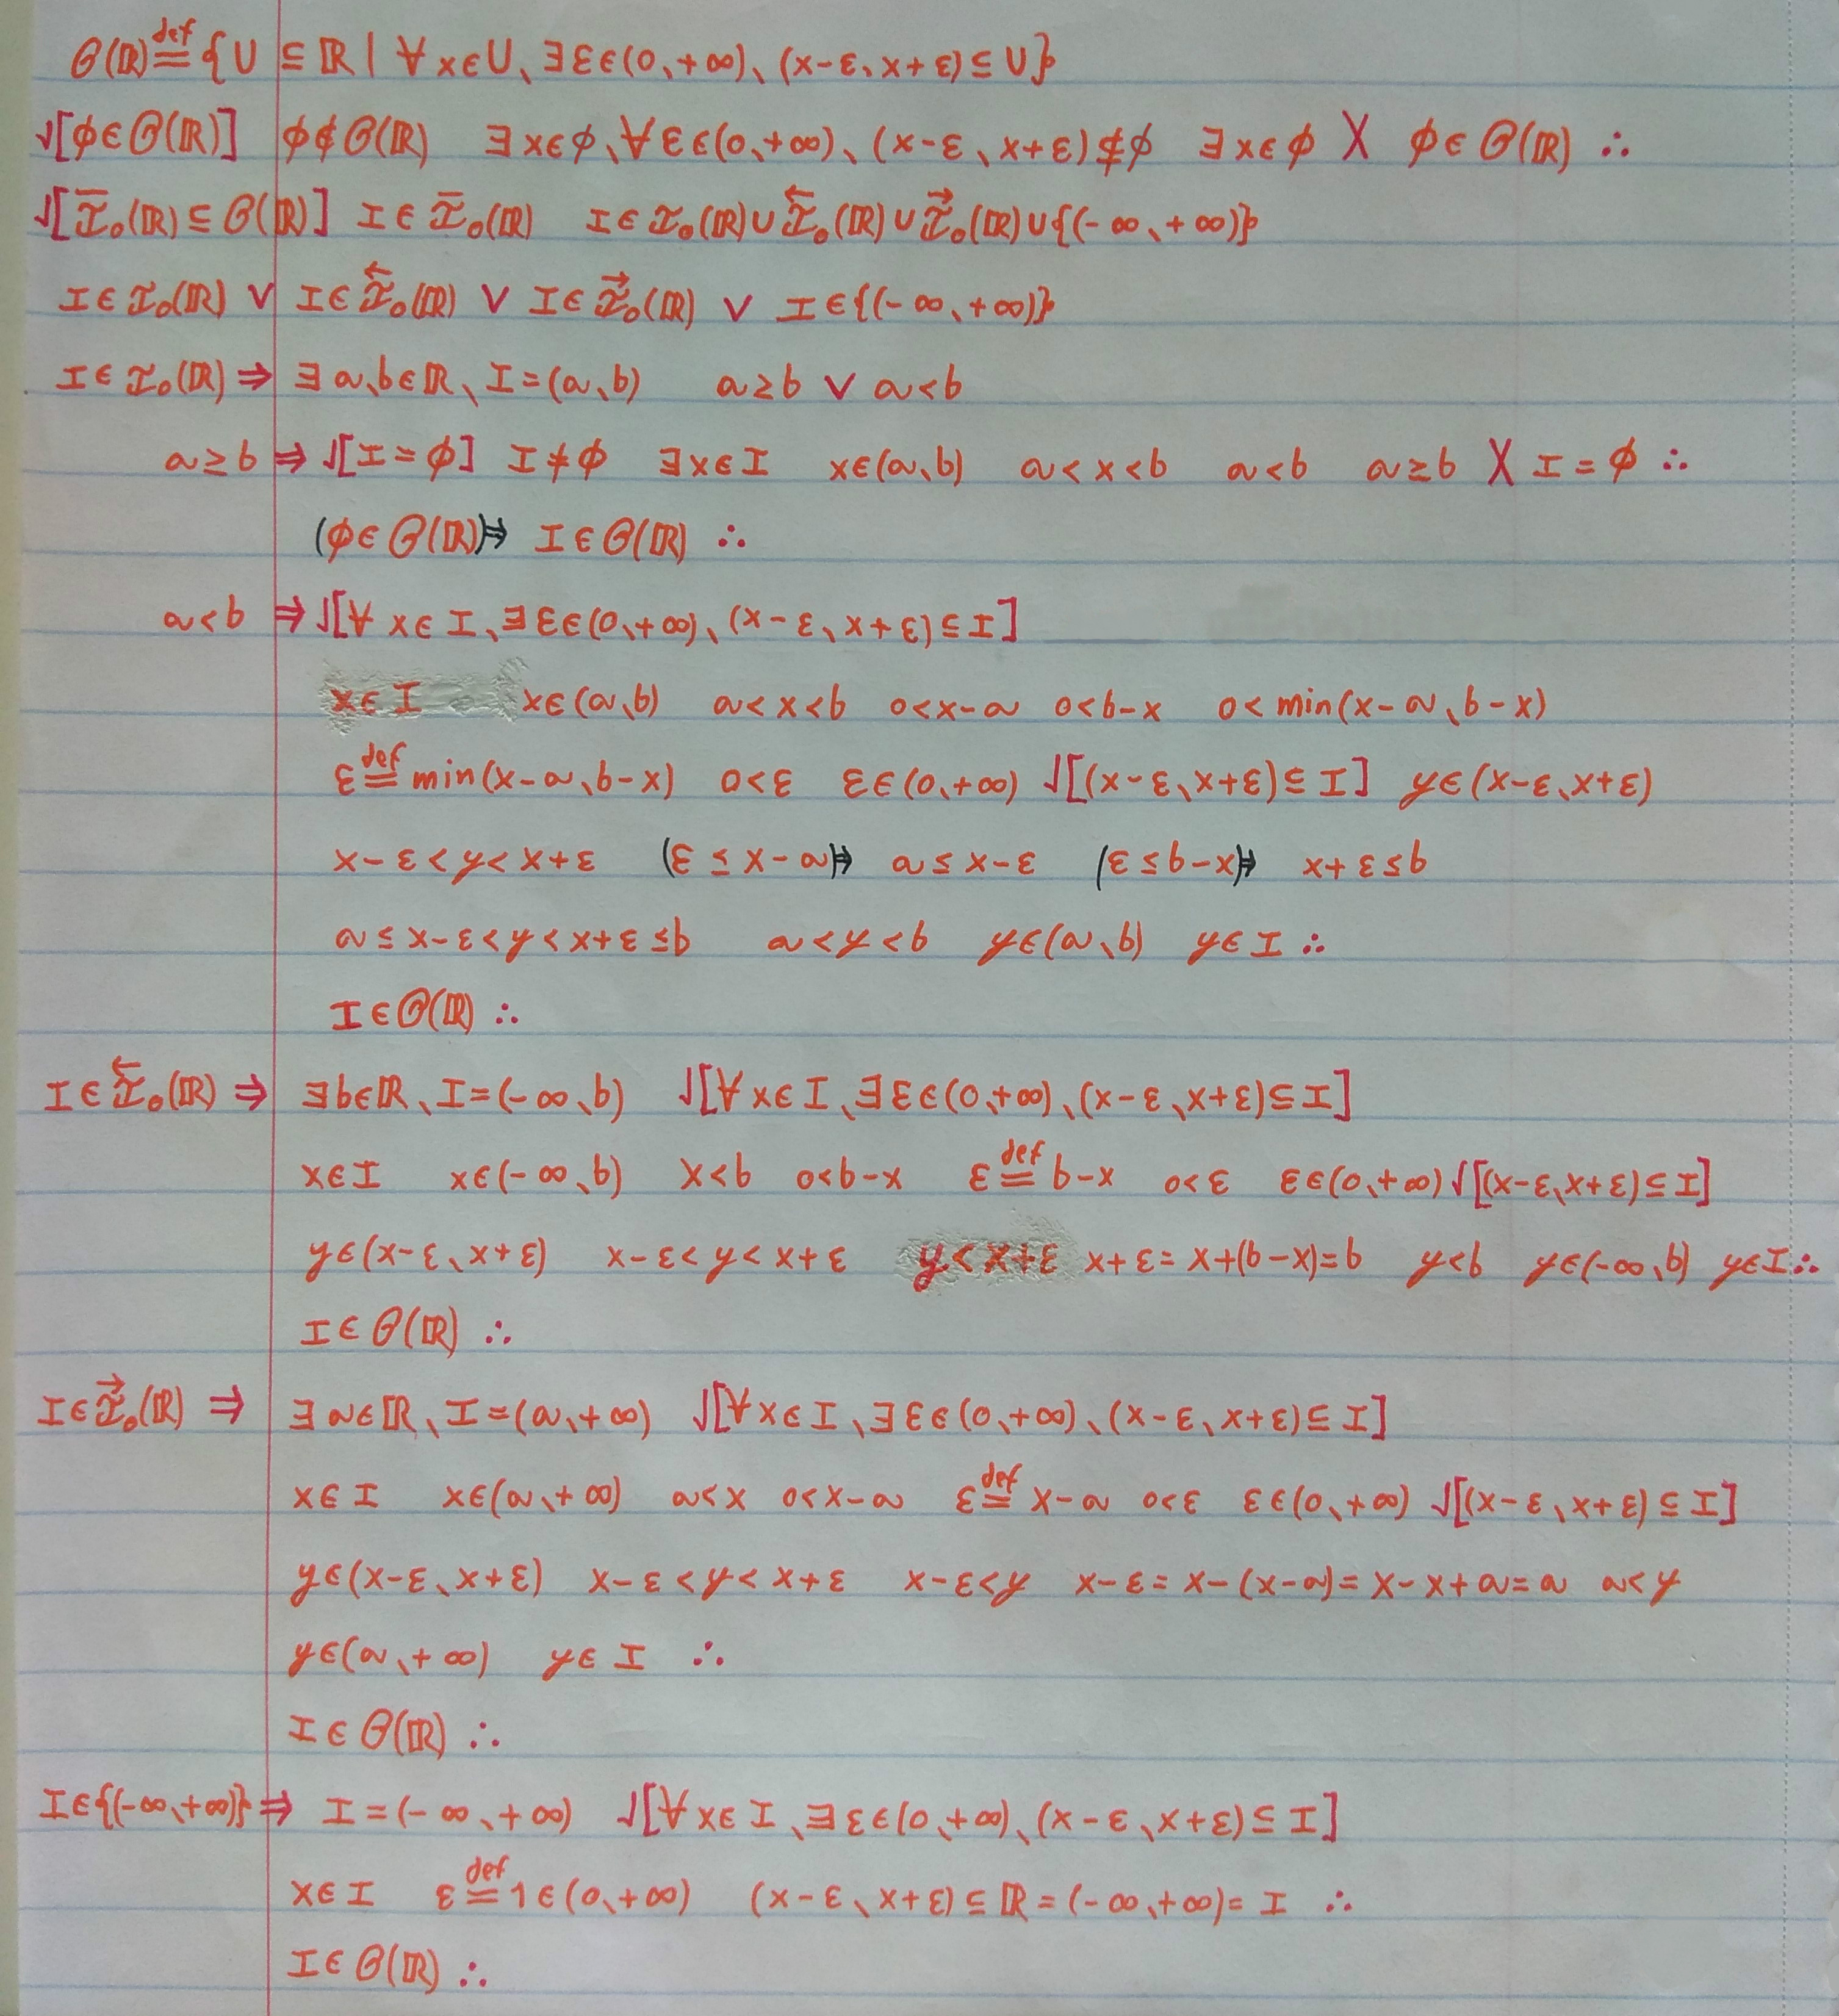 𝒪(ℝ) ≝ {U ⊆ ℝ | ∀x∈U、∃ε∈(0、+∞)、(x-ε、x+ε)⊆U}
√[∅∈𝒪(ℝ)] ∅∉𝒪(ℝ) ∃x∈∅、∀ε∈(0、+∞)、(x-ε、x+ε)⊈∅ ∃x∈∅ X ∅∈𝒪(ℝ) ∴
√[ℐ̅₀(ℝ)⊆𝒪(ℝ)] I∈ℐ̅₀(ℝ) I∈ℐ₀(ℝ)∪ℐ⃖₀(ℝ)∪ℐ⃗₀(ℝ)∪{(-∞、+∞)}
I∈ℐ₀(ℝ) ∨ I∈ℐ⃖₀(ℝ) ∨ I∈ℐ⃗₀(ℝ) ∨ I∈{(-∞、+∞)}
I∈ℐ₀(ℝ) ⇒ ∃a、b∈ℝ、I=(a、b) a≥b ∨ a<b
a≥b ⇒ √[I=∅] I≠∅ ∃x∈I x∈(a、b) a<x<b a<b a≥b X I=∅ ∴
(∅∈𝒪(ℝ))⇒ I∈𝒪(ℝ) ∴
a<b ⇒ √[∀x∈I、∃ε∈(0、+∞)、(x-ε、x+ε)⊆I]
x∈I x∈(a、b) a<x<b 0<x-a 0<b-x 0<min(x-a、b-x)
ε ≝ min(x-a、b-x) 0<ε ε∈(0、+∞) √[(x-ε、x+ε)⊆I] y∈(x-ε、x+ε)
x-ε<y<x+ε (ε≤x-a)⇒ a≤x-ε (ε≤b-x)⇒ x+ε≤b
a≤x-ε<y<x+ε≤b a<y<b y∈(a、b) y∈I ∴
I∈𝒪(ℝ) ∴
I∈ℐ⃖₀(ℝ) ⇒ ∃b∈ℝ、I=(-∞、b) √[∀x∈I、∃ε∈(0、+∞)、(x-ε、x+ε)⊆I]
x∈I x∈(-∞、b) x<b 0<b-x ε ≝ b-x 0<ε ε∈(0、+∞) √[(x-ε、x+ε)⊆I]
y∈(x-ε、x+ε) x-ε<y<x+ε y<x+ε x+ε=x+(b-x)=b y<b y∈(-∞、b) y∈I ∴
I∈𝒪(ℝ) ∴
I∈ℐ⃗₀(ℝ) ⇒ ∃a∈ℝ、I=(a、+∞) √[∀x∈I、∃ε∈(0、+∞)、(x-ε、x+ε)⊆I]
x∈I x∈(a、+∞) a<x 0<x-a ε ≝ x-a 0<ε ε∈(0、+∞) √[(x-ε、x+ε)⊆I]
y∈(x-ε、x+ε) x-ε<y<x+ε x-ε<y x-ε=x-(x-a)=x-x+a=a a<y
y∈(a、+∞) y∈I ∴
I∈𝒪(ℝ) ∴
I∈{(-∞、+∞)} ⇒ I=(-∞、+∞) √[∀x∈I、∃ε∈(0、+∞)、(x-ε、x+ε)⊆I]
x∈I ε ≝ 1∈(0、+∞) (x-ε、x+ε)⊆ℝ=(-∞、+∞)=I ∴
I∈𝒪(ℝ) ∴